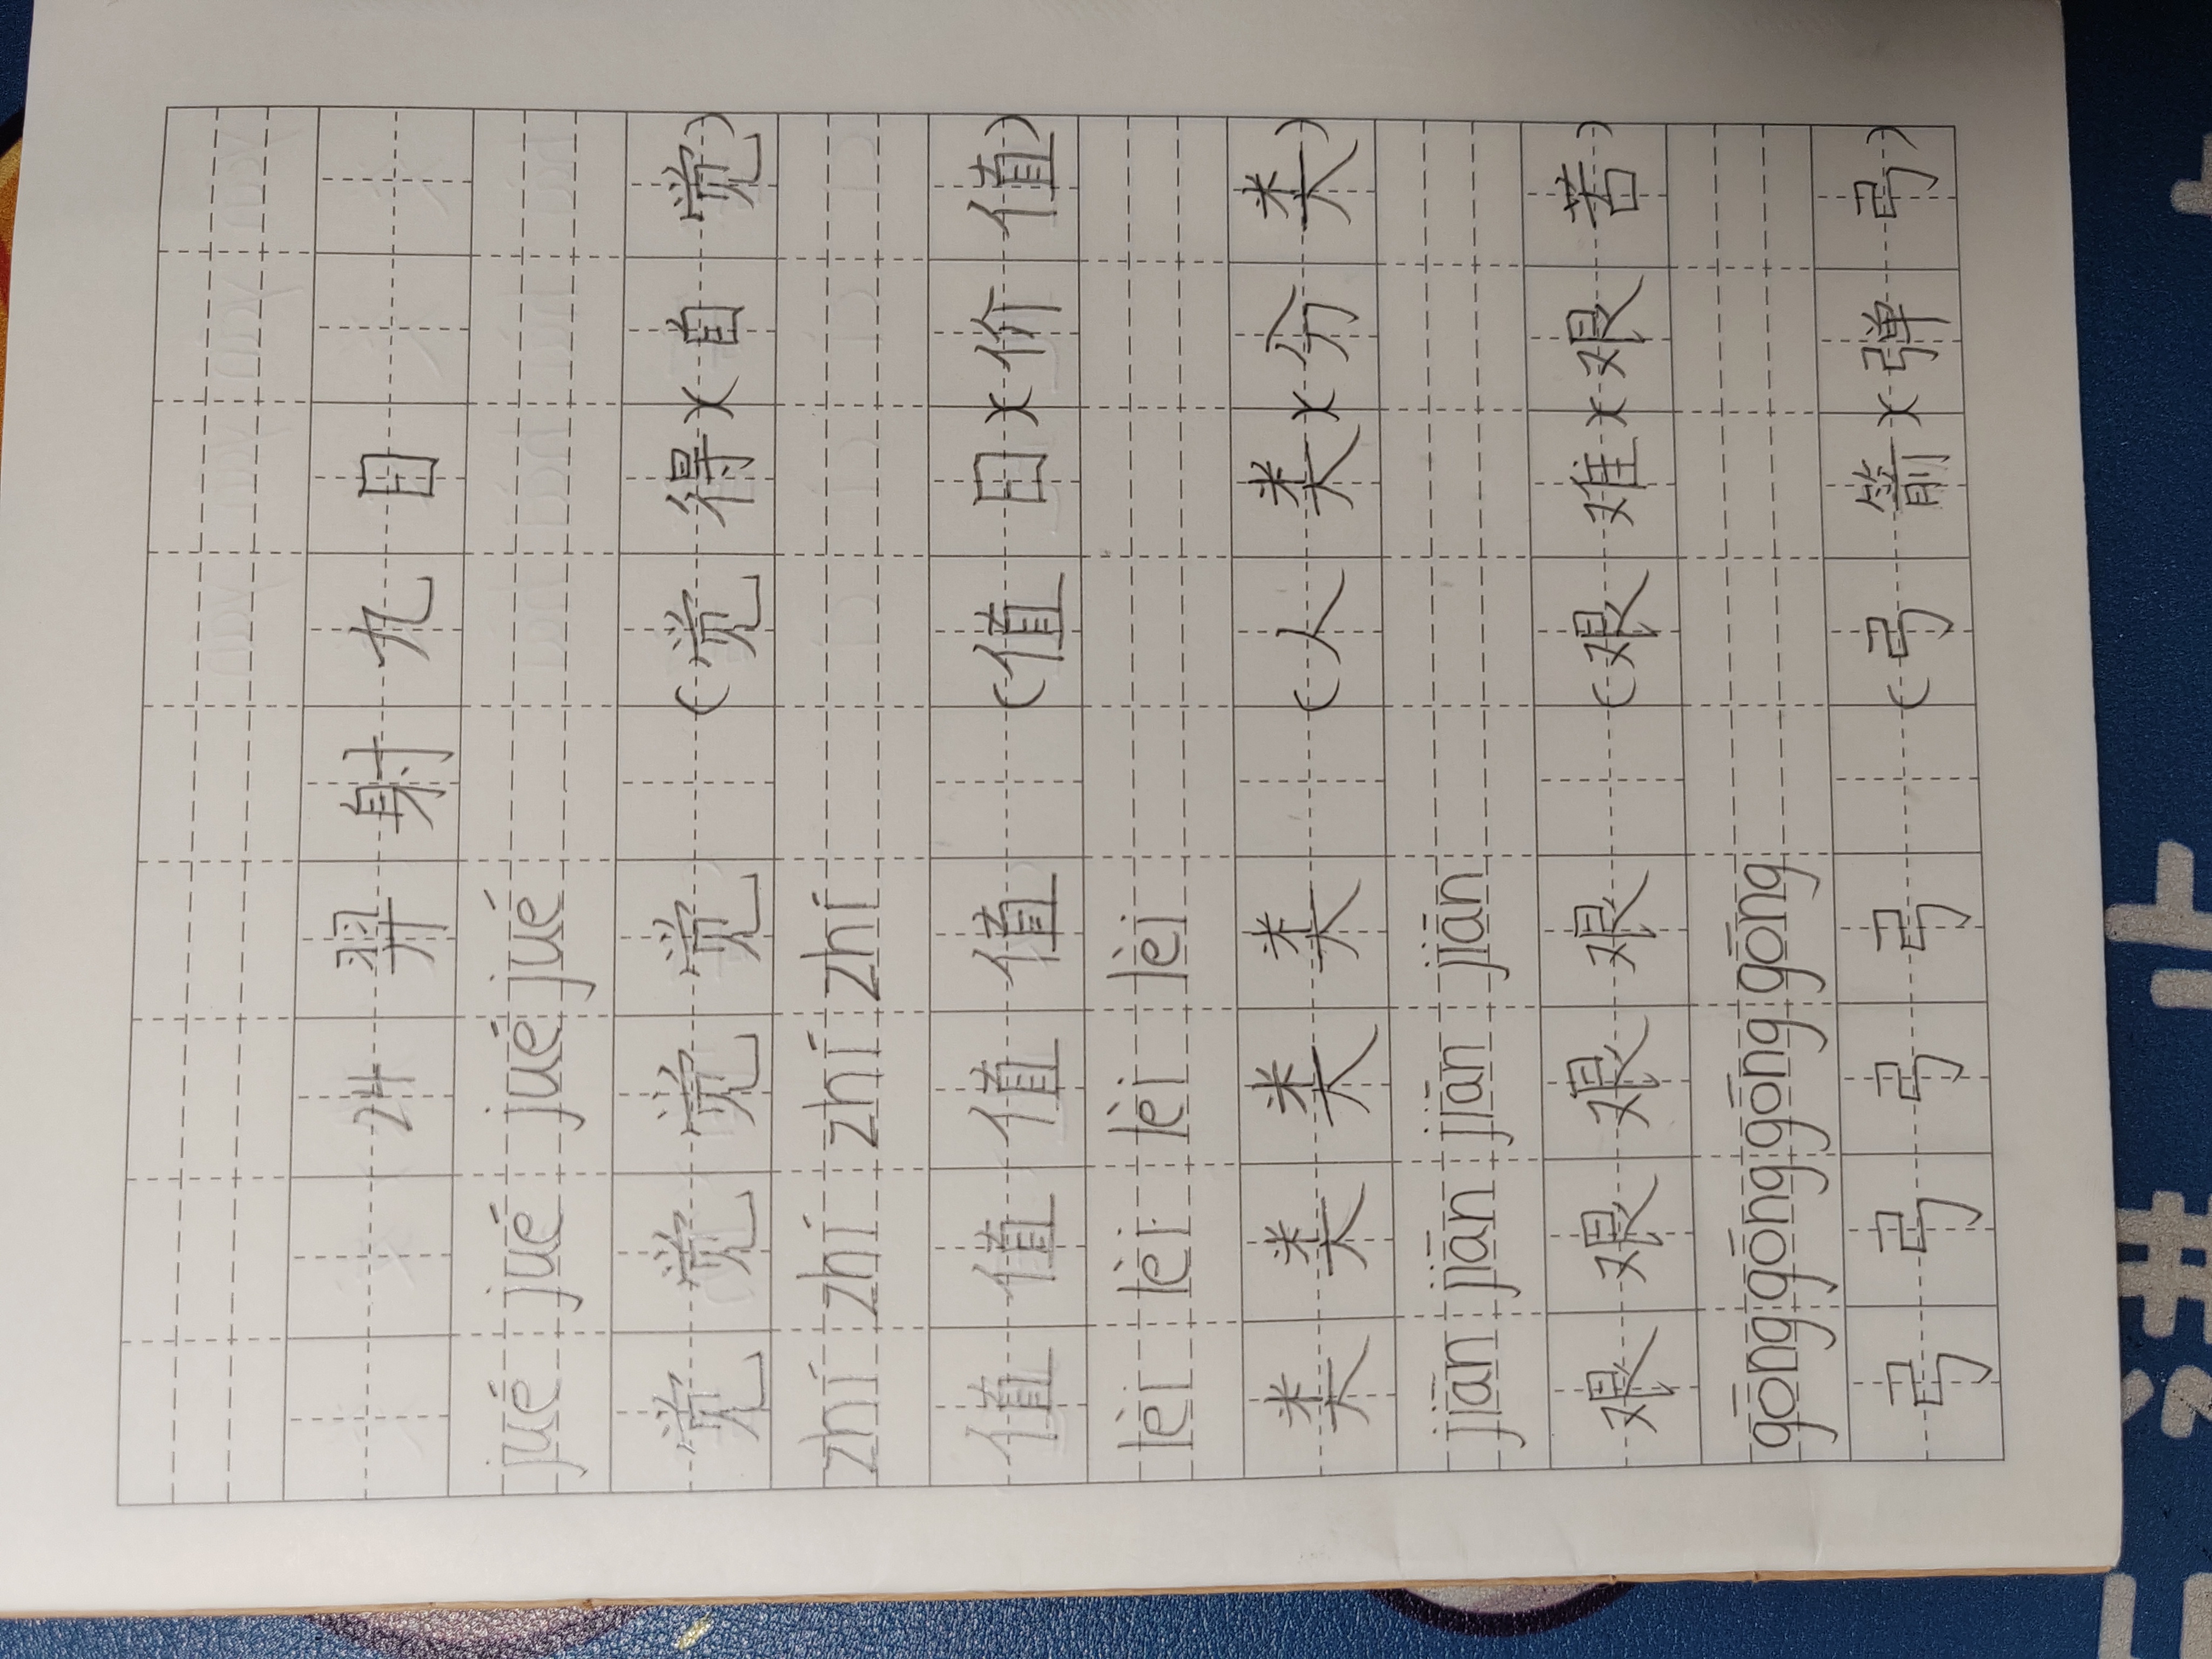 24 羿射九日
jué jué jué jué
觉觉觉觉 (觉得)(自觉)
zhí zhí zhí zhí
值值值值 (值日)(价值)
lèi lèi lèi lèi
类类类类 (人类)(分类)
jiān jiān jiān jiān
艰艰艰艰 (艰难)(艰苦)
gōng gōng gōng gōng
弓弓弓弓 (弓箭)(弹弓)